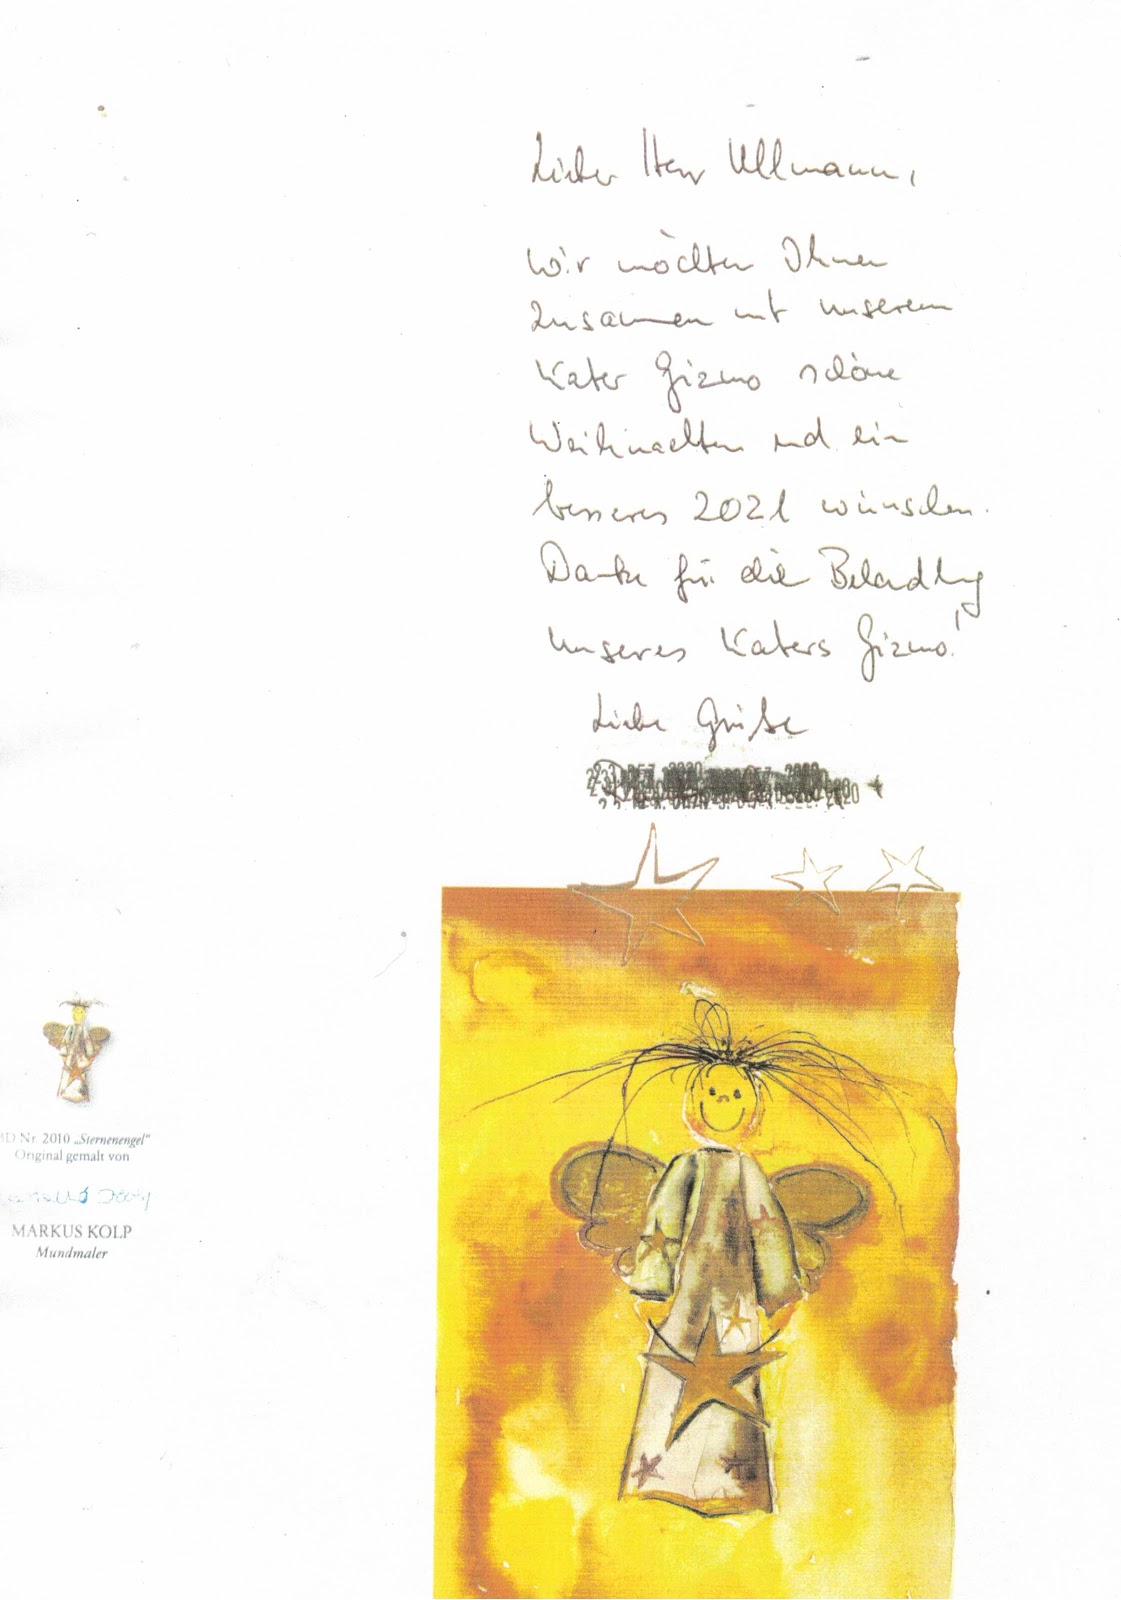 Lieber Herr Ullmann,
wir möchten Ihnen
zusammen mit unserem
Kater Gizmo schöne
Weihnachten und ein
besseres 2021 wünschen.
Danke für die Behandlung
unseres Katers Gizmo!
Liebe Grüße
BD Nr. 2010 „Sternenengel“
Original gemalt von
MARKUS KOLP
Mundmaler